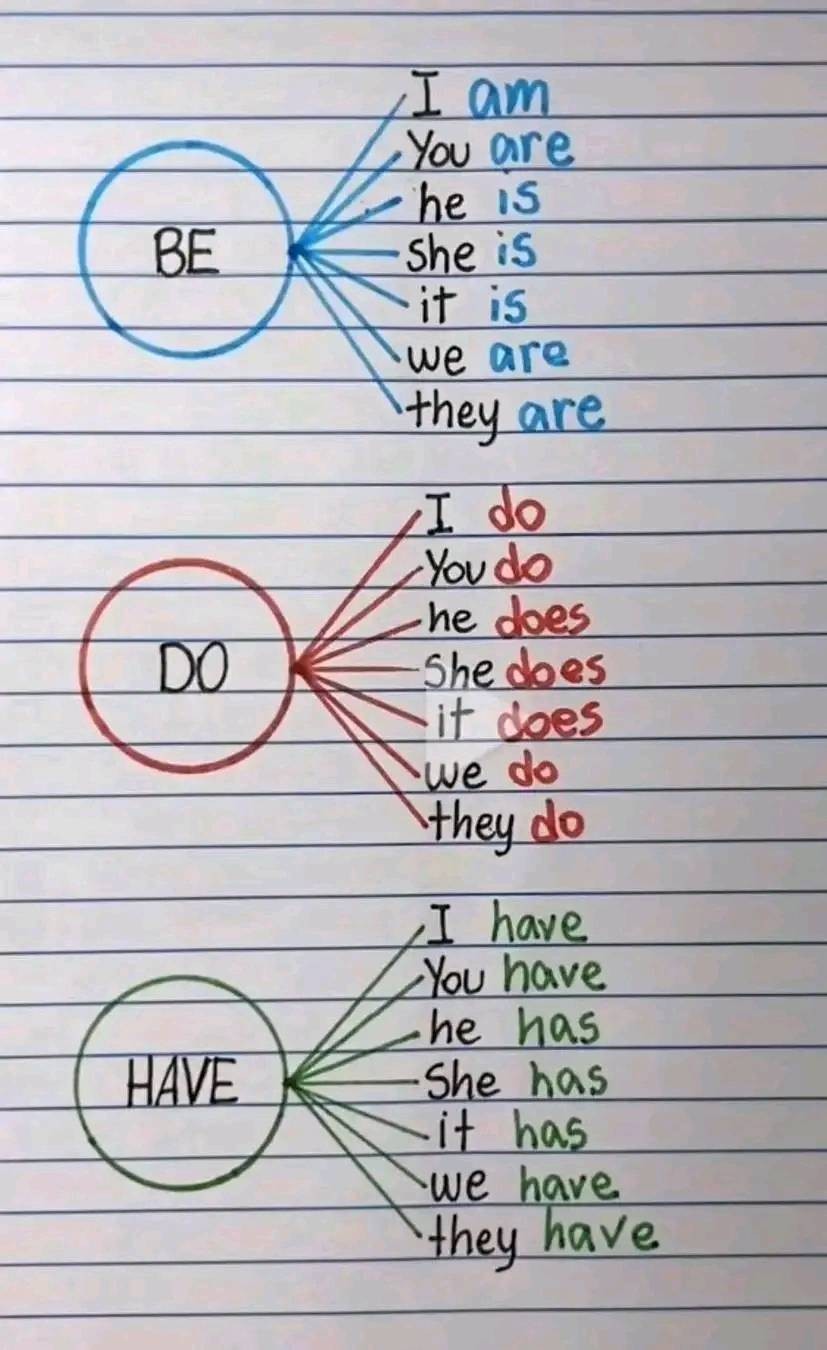 BE
I am
You are
he is
she is
it is
we are
they are
DO
I do
You do
he does
She does
it does
we do
they do
HAVE
I have
You have
he has
She has
it has
we have
they have